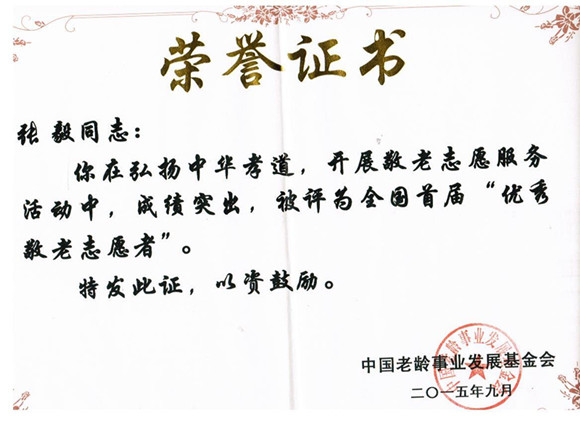 荣誉证书
张毅同志：
你在弘扬中华孝道，开展敬老志愿服务
活动中，成绩突出，被评为全国首届“优秀
敬老志愿者”。
特发此证，以资鼓励。
中国老龄事业发展基金会
二〇一五年九月
中国老龄事业发展基金会